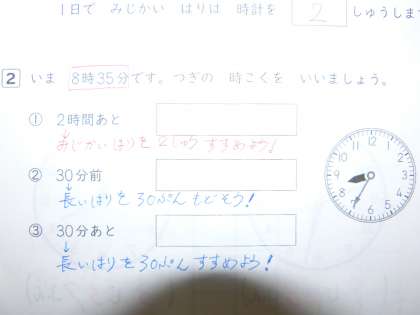 1日で みじかい はりは 時計を 2 しゅうしま
2 いま 8時35分です。つぎの 時こくを いいましょう。
① 2時間あと
みじかいはりを 2しゅう すすめよう!
② 30分前
長いはりを 30ぷん もどそう!
③ 30分あと
長いはりを 30ぷん すすめよう!
12 1 2 3 4 5 6 7 8 9 10 11